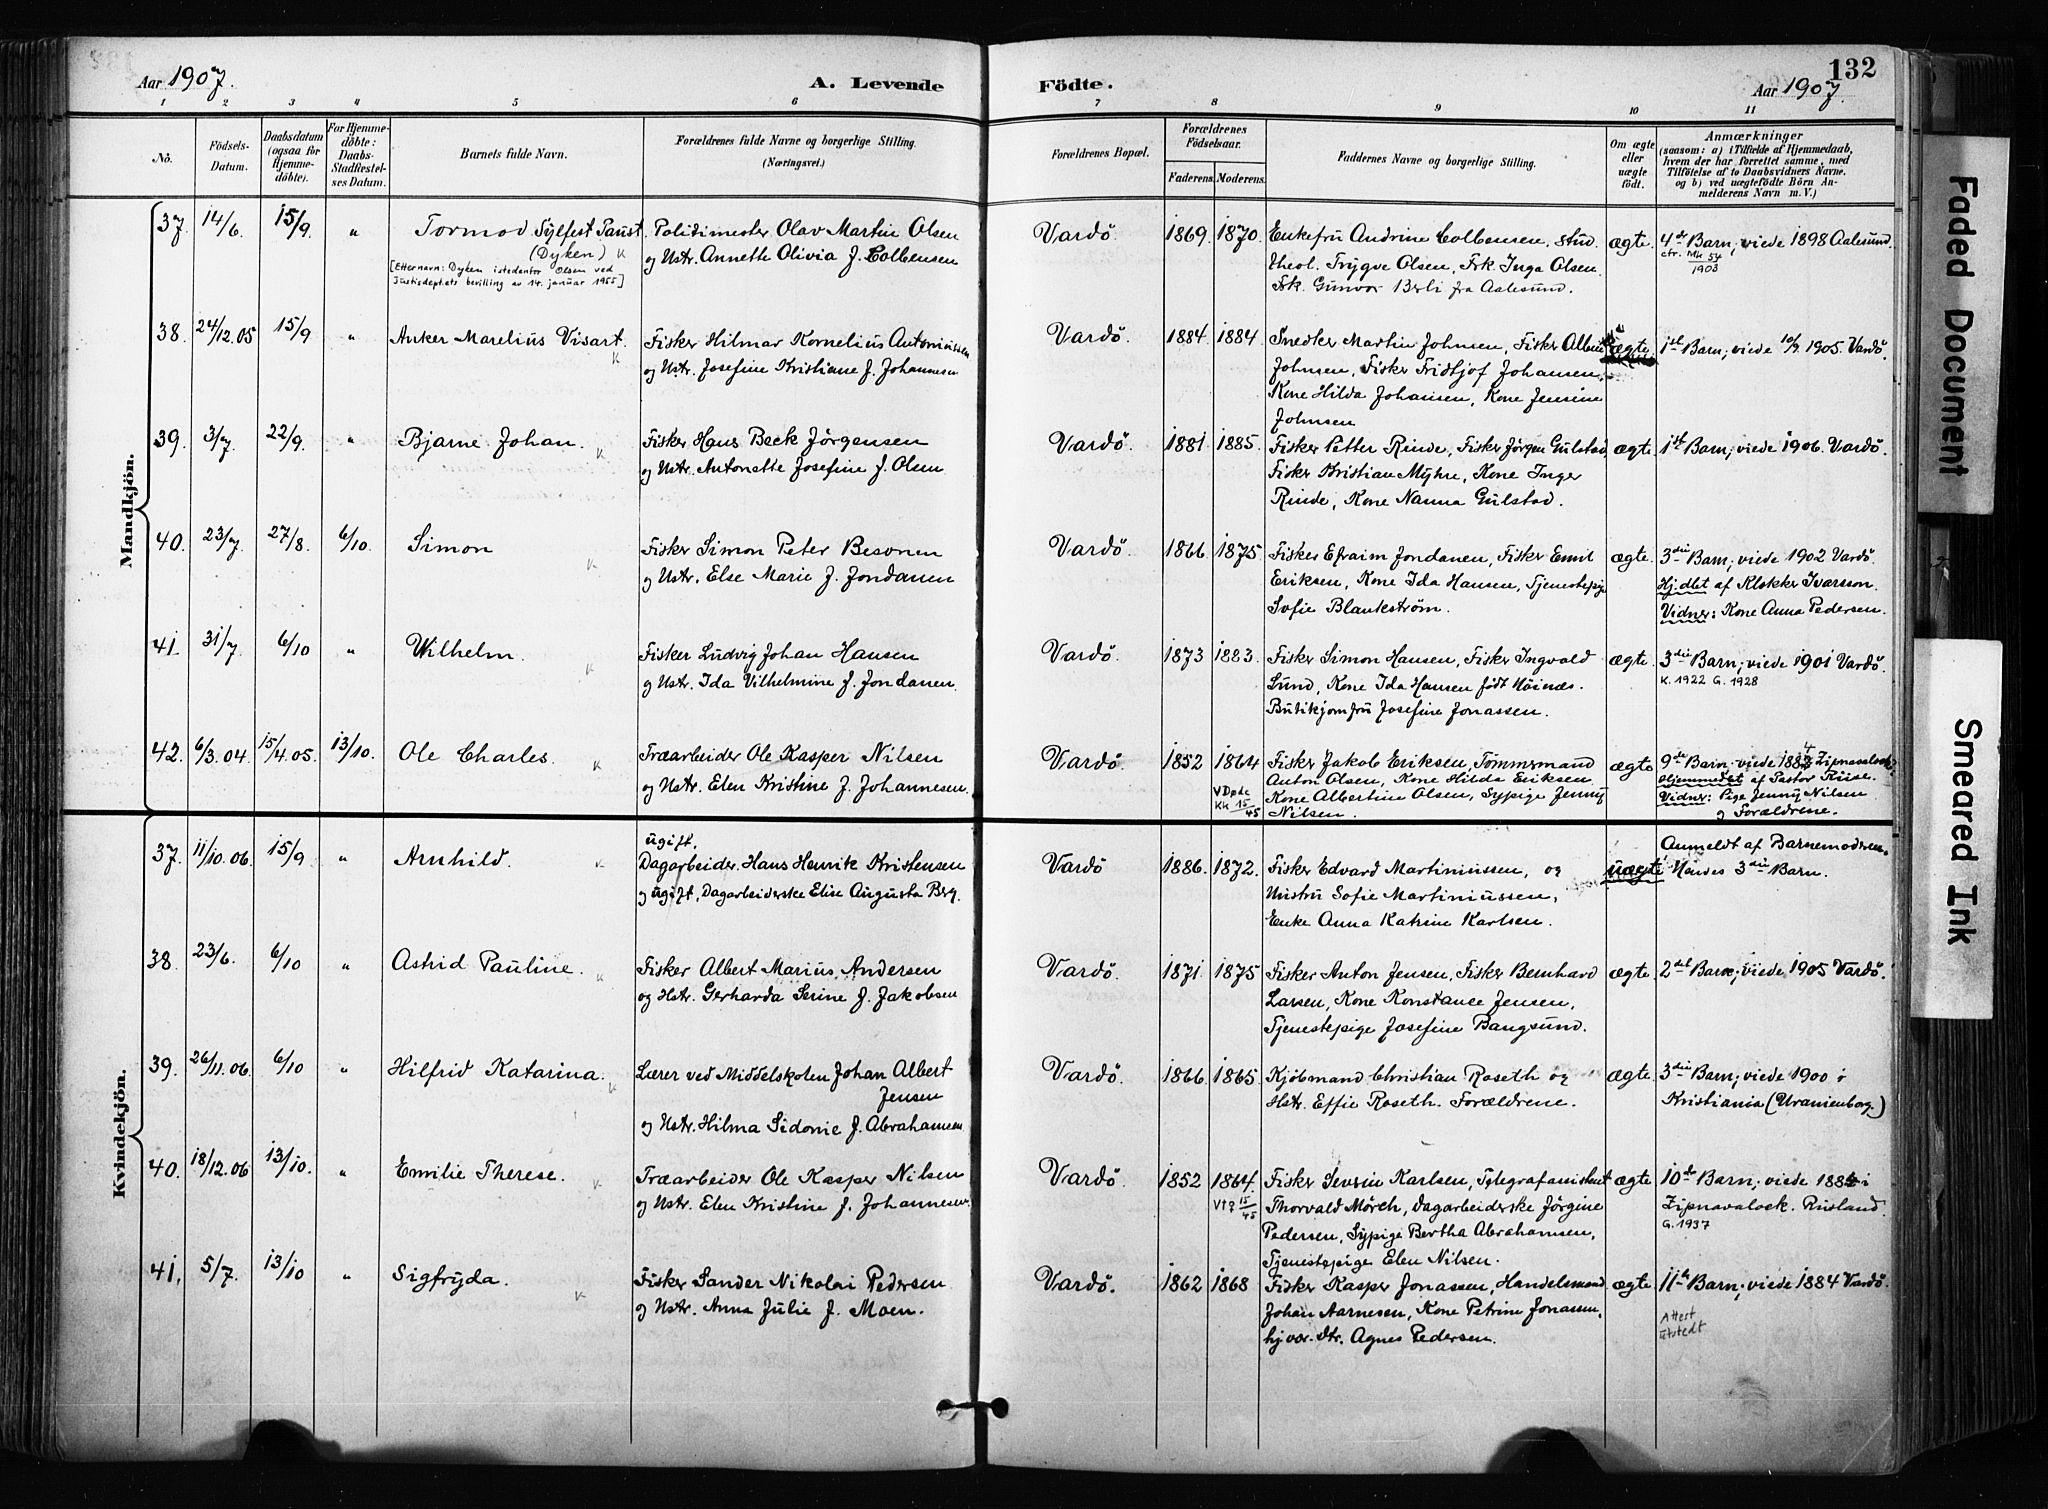 Aar 1907.
A. Levende
Födte.
Aar 1907.
132
1 2 3 4 5 6 7 8 9 10 11
No.
Födsels-Datum.
Daabsdatum (ogsaa for Hjemme-döbte).
For Hjemme-döbte: Daabs-Stadfæstel-ses Datum.
Barnets fulde Navn.
Forældrenes fulde Navne og borgerlige Stilling. (Næringsvei.)
Forældrenes Bopæl.
Forældrenes Födselsaar.
Faderens. Moderens.
Faddernes Navne og borgerlige Stilling.
Om ægte eller uægte födt.
Anmærkninger
(saasom: a) i Tilfælde af Hjemmedaab,
hvem der har forrettet samme, med
Tilföielse af to Daabsvidners Navne.
og b) ved uægtefödte Börn An-
melderens Navn m. V.)
Mandkjön.
37. 14/6. 15/9. " Tormod Sylfest Paust. Politimester Olav Martin Olsen
(Dyken) og Hstr. Annette Olivia f. Colbensen
[Etternavn: Dyken istedenfor Olsen ved
Justisdept.ets bevilling av 14. januar 1955]
Vardö. 1869. 1870. Enkefru Andrine Colbensen, stud. ægte. 4de Barn; viede 1898 Aalesund.
theol. Trygve Olsen, Frk. Inga Olsen, cfr. Mk 54/1903
Frk. Gunvor Berli fra Aalesund.
38. 24/12.05 15/9 " Anker Marelius Visart. Fisker Hilmar Kornelius Antoniussen
og Hstr. Josefine Kristiane f. Johannesen
Vardö. 1884. 1884. Snedker Martin Johnsen, Fisker Albin ægte 1ste Barn; viede 10/9. 1905. Vardö.
Johnsen, Fisker Fridtjof Johansen,
Kone Hilda Johansen, Kone Jensine
Johnsen
39. 3/7. 22/9. " Bjarne Johan. Fisker Hans Beck Jörgensen
og Hstr. Antonette Josefine f. Olsen
Vardö. 1881. 1885. Fisker Petter Rinde, Fisker Jörgen Gulstad, ægte. 1ste Barn; viede 1906. Vardö.
Fisker Kristian Myhre, Kone Inger
Rinde, Kone Nanna Gulstad.
40. 23/7. 27/8. 6/10. Simon Fisker Simon Peter Besonen
og Hstr. Else Marie f. Jondanen
Vardö. 1866. 1875. Fisker Efraim Jondanen, Fisker Emil ægte. 3die Barn; viede 1902 Vardö.
Eriksen, Kone Ida Hansen, Tjenestepige Hj.døbt af Klokker Ivarsson.
Sofie Blankström. Vidner: Kone Anna Pedersen.
41. 31/7. 6/10 " Wilhelm. Fisker Ludvig Johan Hansen
og Hstr. Ida Vilhelmine f. Jondanen.
Vardö. 1873 1883. Fisker Simon Hansen, Fisker Ingvald ægte. 3die Barn; viede 1901 Vardö.
Lund, Kone Ida Hansen født Höinæs. K. 1922 G. 1928
Butikjomfru Josefine Jonassen.
42. 6/3.04. 15/4.05. 13/10. Ole Charles. Træarbeider Ole Kasper Nilsen
og Hstr. Elen Kristine f. Johannesen.
Vardö. 1852 1864 Fisker Jakob Eriksen, Tömmermand ægte 9de Barn; viede 1884 Zipnavalock.
V Døde Kk 15/45
Anton Olsen, Kone Hilda Eriksen Hjemmedøbt af Pastor Riise.
Kone Albertine Olsen, Sypige Jenny Vidner: Pige Jenny Nilsen
Nilsen. og Forældrene.
Kvindekjön.
37. 11/10.06. 15/9 " Arnhild. ugift.
Dagarbeider. Hans Henrik Kristensen
og ugift, Dagarbeiderske Elise Augusta Berg.
Vardö 1886. 1872. Fisker Edvard Martiniussen, og uægte Anmeldt af Barnemoderen.
Hustru Sofie Martiniussen, Hendes 3die Barn.
Enke Anna Katrine Karlsen.
38. 23/6. 6/10 " Astrid Pauline. Fisker Albert Marius Andersen
og Hstr. Gerharda Serine f. Jakobsen
Vardö. 1871. 1875 Fisker Anton Jensen, Fisker Bernhard ægte. 2det Barn; viede 1905 Vardö.
Larsen, Kone Konstance Jensen,
Tjenestepige Josefine Bangsund.
39. 26/11.06 6/10 " Hilfrid Katarina. Lærer ved Middelskolen Johan Albert
Jensen
og Hstr. Hilma Sidonie f. Abrahamsen
Vardö. 1866. 1865. Kjöbmand Christian Roseth og ægte. 3die Barn; viede 1900 i
Hstr. Effie Roseth. Forældrene. Kristiania (Uranienborg.)
40. 18/12.06 13/10. " Emilie Therese. Træarbeider Ole Kasper Nilsen
og Hstr. Elen Kristine f. Johannesen.
Vardö. 1852 1864. Fisker Severin Karlsen, Telegrafassistent ægte. 10de Barn; viede 1884 i
15/45
Thorvald Mörch, Dagarbeiderske Jörgine Zipnavalock. Rusland.
Pedersen, Sypige Bertha Abrahamsen, G. 1937
Tjenestepige Elen Nilsen.
41. 5/7. 13/10 " Sigfryda. Fisker Sander Nikolai Pedersen
og Hstr. Anna Julie f. Moen.
Vardö. 1862 1868 Fisker Kasper Jonassen, Handelsmand ægte. 11te Barn; viede 1884 Vardö.
Johan Aarnesen, Kone Petrine Jonassen, Attest
hj.vær. dtr. Agnes Pedersen. utstedt
Faded Document
Smeared Ink